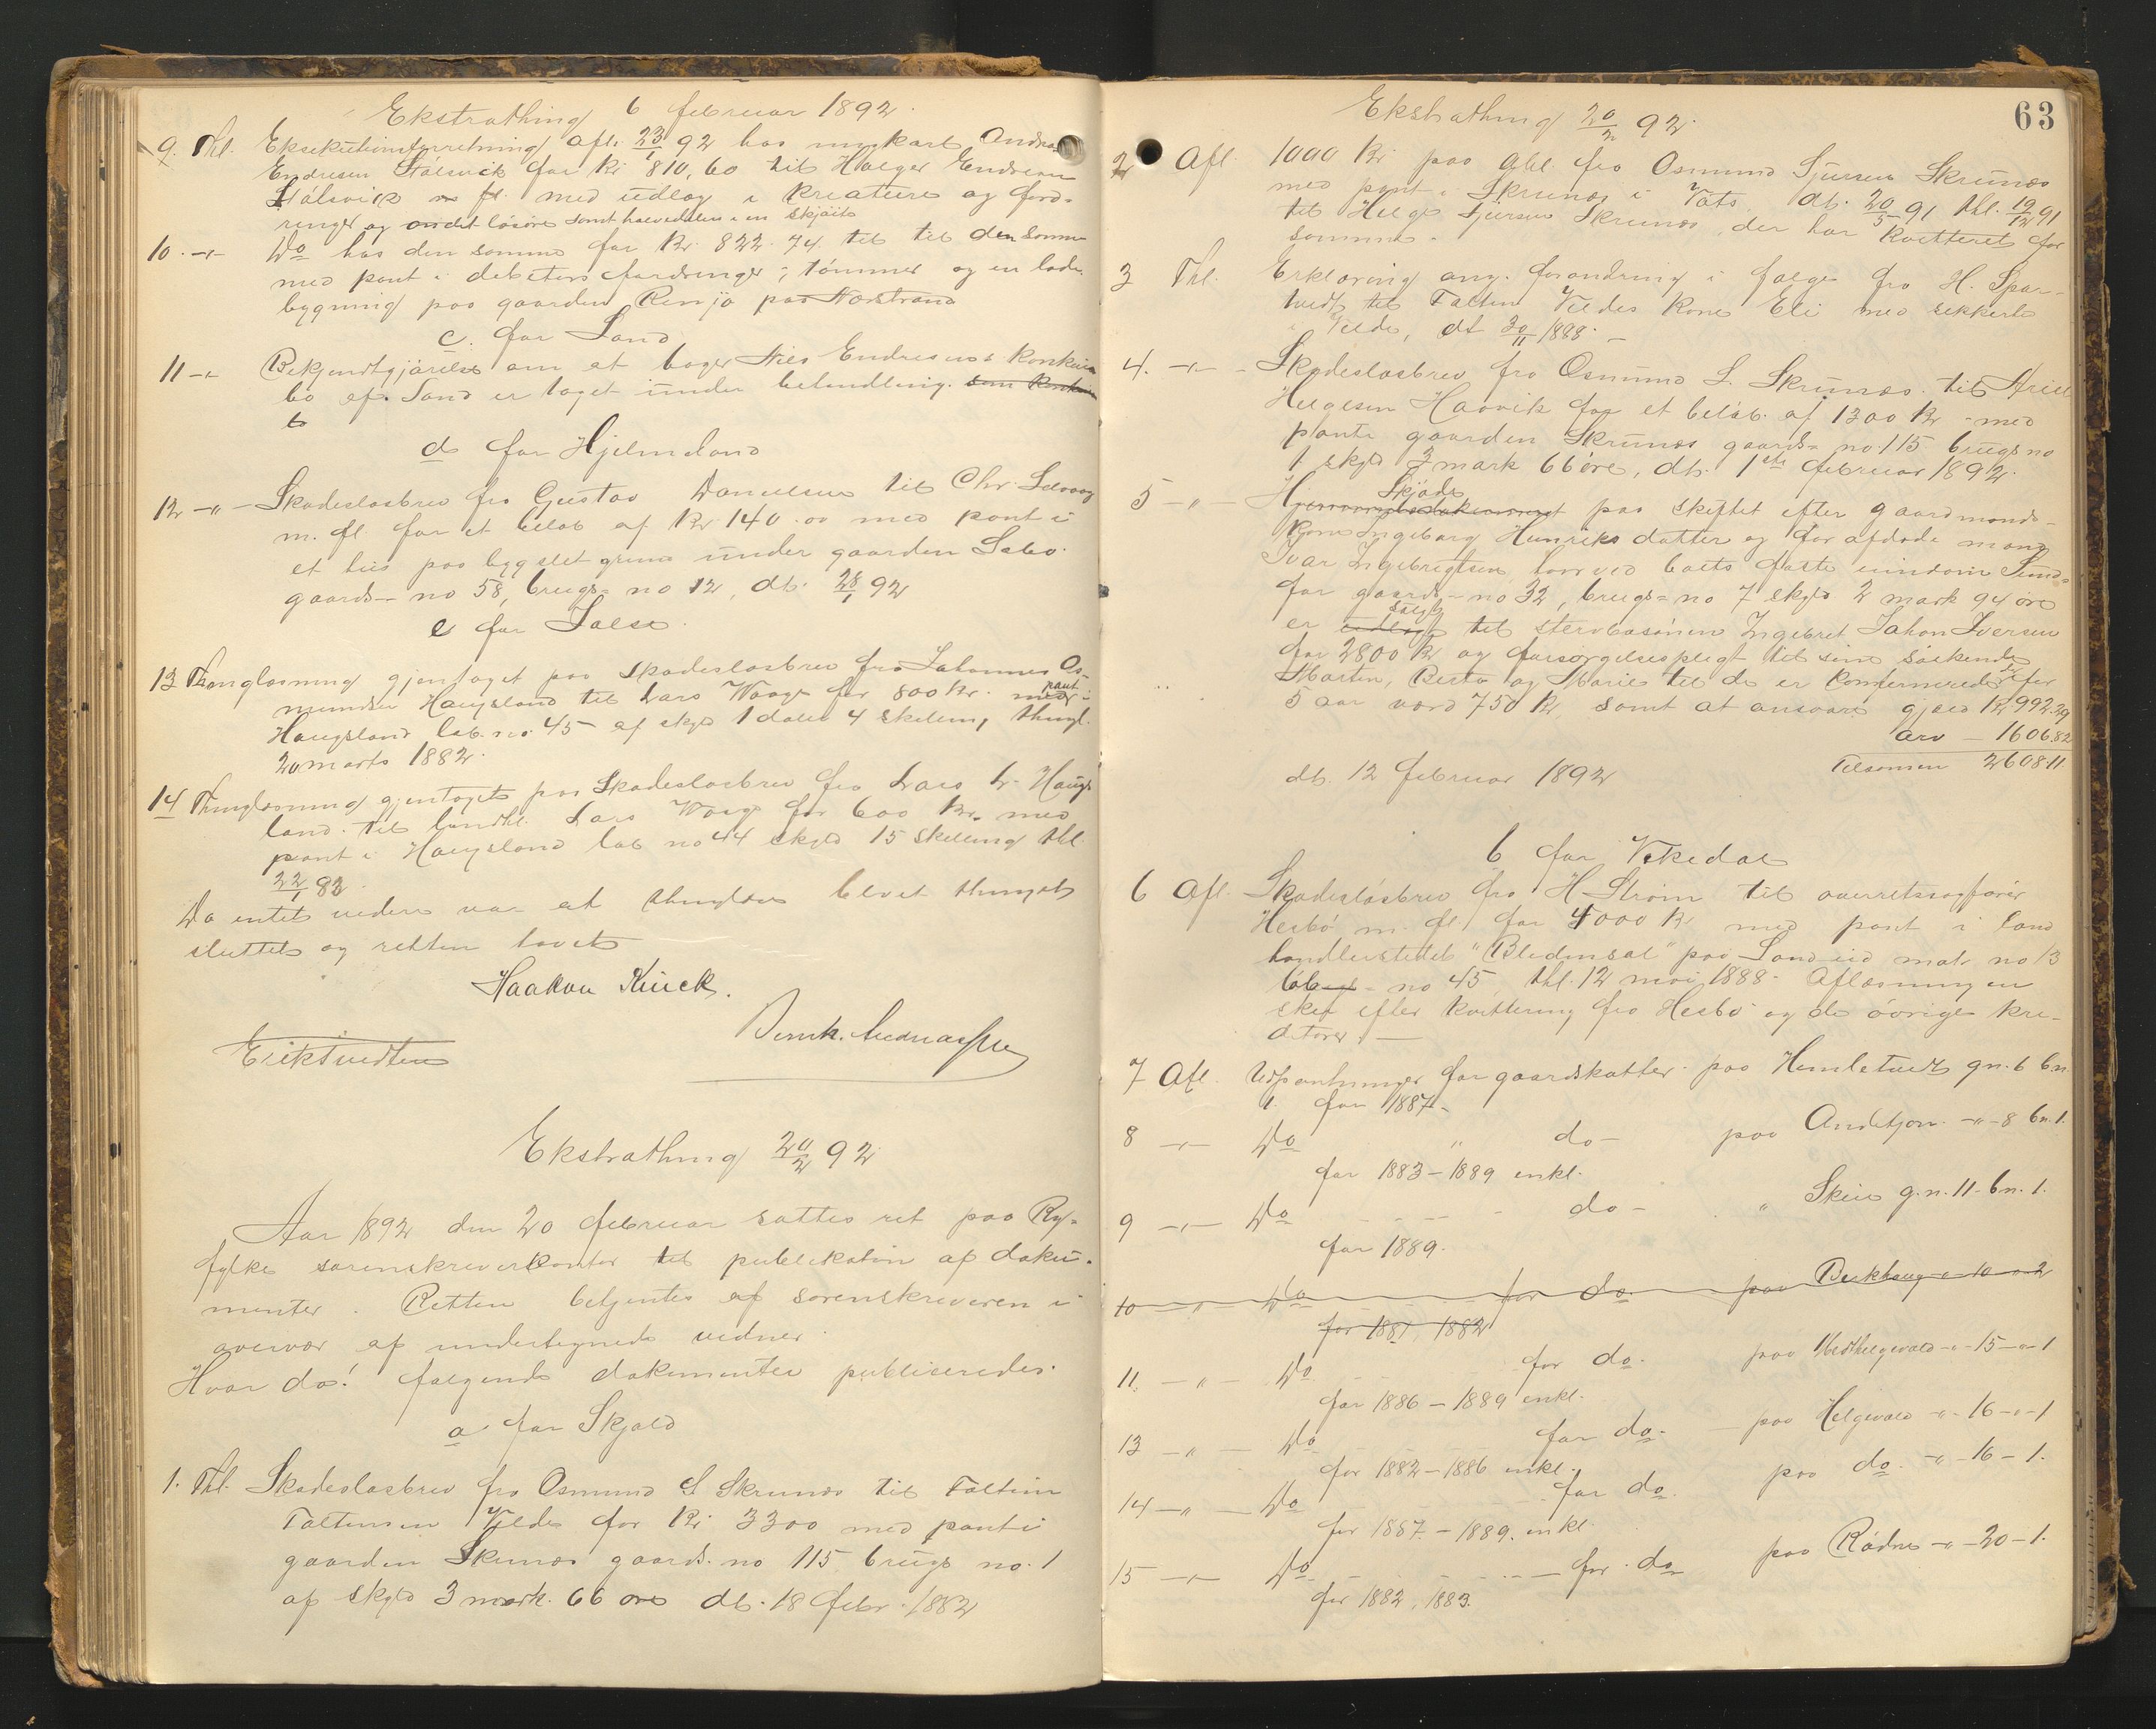 Ekstrathing 6 februar 1892.
9. Thl. Eksekutionsforretning afl. 23/1 92 hos Andreas
Endresen Stølsvik for Kr 810,60 til Holger Endresen
Stølsvik m fl. med udlæg i kreature og ford-
ringer og andet løsøre samt halvedelen i en skjøite
10. -"- Do hos den samme for Kr. 822.74 til til den samme
med pant i debitors fordringer; tømmer og en lade-
bygning paa gaarden Renjø paa Nærstrand
c. for Sand
11 -"- Bekjendtgjørelse om at bager Nils Endresens konkurs
bo af Sand er taget under behandling. som konkurs
b
d for Hjelmeland
12 -"- Skadesløsbrev fra Gustav Danielsen til Chr.
m. fl. for et beløb af Kr 140.00 med pant i
et hus paa bygslet grund under gaarden Sabø.
gaards-no 58, brugs-no 12, dt. 28/1 92
e for Jælse.
13 Thinglæsning gjentaget paa skadesløsbrev fra Johannes Os-
mundsen Haugsland til Lars Waage for 800 kr. med pant i
Haugsland løb. no. 45 af skyld 1 daler 4 skilling, thingl.
20 marts 1882.
14 Thinglæsning gjentaget paa Skadesløsbrev fra Lars L. Haugs
land. til landhl. Lars Waage for 600 Kr. med
pant i Haugsland løb no 44 skyld 15 skilling thl
22/1 82.
Da intet videre var at thinglæse blevet thinget
sluttet og retten hævet
Haakon Kinck.
Bernh.
Erik Tvedten
Ekstrathing 20/2 92
Aar 1892 den 20 februar sattes ret paa Ry-
fylke sorenskriverkontor til publikation af doku-
menter. Retten betjentes af sorenskriveren i
overvær af undertegnede vidner.
Hvor da! følgende dokumenter publiseredes.
a for Skjold
1. Thl. Skadesløsbrev fra Osmund S Skrunes til Faltin
Faltinsen Velde for Kr. 3300 med pant i
gaarden Skrunes gaards. no 115 brugs no. 1
af skyld 3 mark. 66 øre dt. 18 febr. 1882
63
Ekstrathing 20/2 92.
2 Afl 1000 Kr. paa obl. fra Osmund Sjursen Skrunes
med pant i Skrunes i Vats dt. 20/5 91 thl. 19/12 91
til Helge Sjursen Skrunes, der har kvitteret for
summen.
3 Thl. Erklæring ang. forandring i følge fra H. Spar-
tvedt til Faltin Veldes kone Eli med sikkerhed
i Velde, dt 30/11 1888. -
4. -"- Skadesløsbrev fra Osmund S. Skrunes. til
Helgesen Haavik for et beløb. af 1300 Kr - med
pant i gaarden Skrunes gaards- no. 115 brugs no
1 skyld 3 mark 66 øre, dt. 1ste februar 1892.
5 -"- Skjøde paa skiftet efter gaardmands-
kone Ingeborg Henriks datter og før afdøde mand
Ivar Ingebrigtsen hvorved boets faste eiendom Sund-
før gaards-no 32, brugs-no 7 skyld 2 mark 94 øre
er udlagt solgt til stervbosønnen Ingebret Johan Iversen
for 2800 Kr og forsørgelsespligt til sine søskende
Martin, Berta og Marie til de er konfirmerede i for
5 aar værd 750 Kr, samt at ansvare gjæld Kr. 992.29
arv - 1606.82
Tilsamen 2608.11
dt. 12 februar 1892
b for Vikedal
6 Afl. Skadesløsbrev fra H Strøm til overretssagfører
Hesbø m. fl for 4000 Kr med pant i land
handlerstedet "Bledensal" paa Sandeid matr no 13
løb - no 45 thl. 12 mai 1888. Aflæsningen
skeg efter kvittering fra Hesbø og de øvrige kre-
ditorer. -
7 Afl. Udpantninger for gaardskatter. paa gn. 6 b.n.
1. for 1887-
8 -"- Do " do - paa -"- 8 bn. 1.
for 1883-1889 inkl.
9 -"- Do do - " g.n. 11 - bn. 1.
for 1889.
10 -"- Do for do. paa -"- 10 -"- 2
for 1881, 1882
11. -"- Do for do. paa -"- 15 -"- 1
for 1886 - 1889 inkl.
13 -"- Do for do. paa Helgevold -"- 16 -"- 1
for 1882-1886 inkl.
14 -"- Do for do. paa do. -"- 16 - 1.
for 1887. - 1889. inkl.
15 -"- Do for do paa Rødne -"- 20 - 1.
for 1882, 1883.